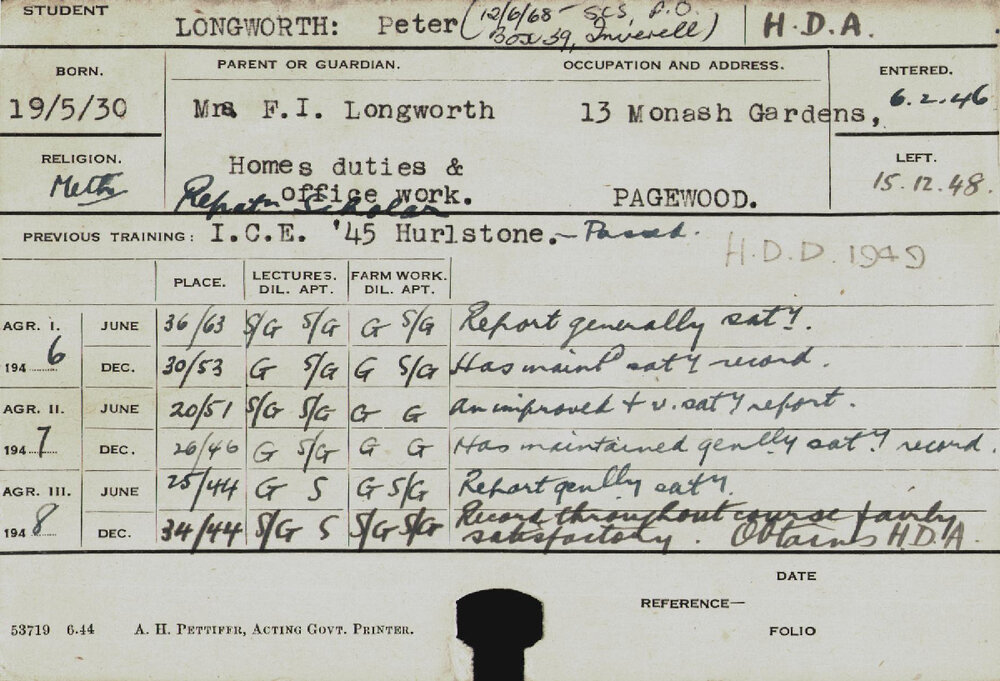 STUDENT
LONGWORTH: Peter (12/6/68 - SCS, P.O. Box 39, Inverell) H.D.A.
BORN. PARENT OR GUARDIAN. OCCUPATION AND ADDRESS. ENTERED.
19/5/30 Mrs F.I. Longworth 13 Monash Gardens, 6.2.46
RELIGION. Homes duties & LEFT.
Meth office work. PAGEWOOD. 15.12.48.
Repatn Scholar
PREVIOUS TRAINING: I.C.E. '45 Hurlstone. - Passed.
H.D.D. 1949
PLACE. LECTURES. FARM WORK.
DIL. APT. DIL. APT.
AGR. I. JUNE 36/63 S/G S/G G S/G Report generally sat'y.
1946 DEC. 30/53 G S/G G S/G Has maintd sat'y record.
AGR. II. JUNE 20/51 S/G S/G G G An improved & v. sat'y report.
1947 DEC. 26/46 G S/G G G Has maintained genlly sat'y record.
AGR. III. JUNE 25/44 G S G S/G Report genlly sat'y.
1948 DEC. 34/44 S/G S S/G S/G Record throughout course fairly
satisfactory. Obtains H.D.A.
DATE
REFERENCE—
FOLIO
53719 6.44 A. H. PETTIFER, ACTING GOVT. PRINTER.